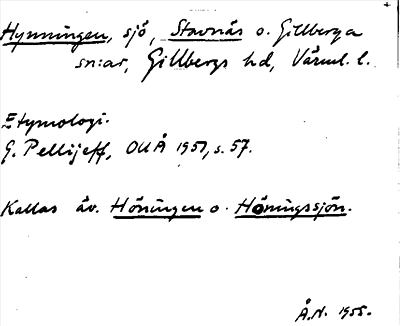 Hynningen, sjö, Stavnäs o. Gillberga
sn:ar, Gillbergs hd, Värml. l.
Etymologi.
G. Pellijeff, OUÅ 1951, s. 57.
Kallas äv. Höningen o. Höningssjön.
Å.N. 1955.